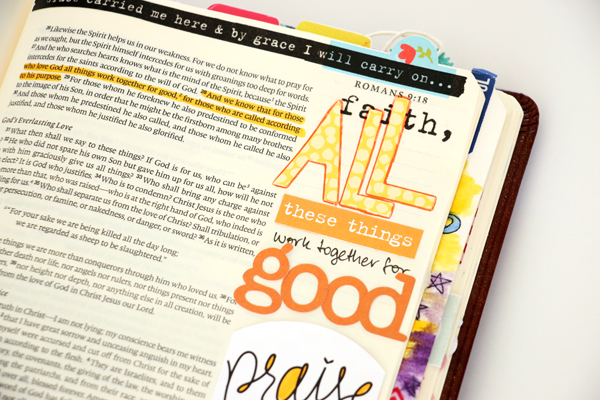 grace carried me here & by grace I will carry on...
ROMANS 9:18
26 Likewise the Spirit helps us in our weakness. For we do not know what to pray for
as we ought, but the Spirit himself intercedes for us with groanings too deep for words.
27 And he who searches hearts knows what is the mind of the Spirit, because the Spirit
intercedes for the saints according to the will of God. 28 And we know that for those
who love God all things work together for good, for those who are called according
to his purpose. 29 For those whom he foreknew he also predestined to be conformed
to the image of his Son, in order that he might be the firstborn among many brothers.
30 And those whom he predestined he also called, and those whom he called he also
justified, and those whom he justified he also glorified.
God's Everlasting Love
31 What then shall we say to these things? If God is for us, who can be against
32 He who did not spare his own Son but gave him up for us all, how will he not
with him graciously give us all things? 33 Who shall bring any charge against
elect? It is God who justifies. 34 Who is to condemn? Christ Jesus is the one who
more than that, who was raised—who is at the right hand of God, who indeed is
ing for us. 35 Who shall separate us from the love of Christ? Shall tribulation, or
persecution, or famine, or nakedness, or danger, or sword? 36 As it is written,
"For your sake we are being killed all the day long;
we are regarded as sheep to be slaughtered."
these things we are more than conquerors through him who loved us. 38 For
ther death nor life, nor angels nor rulers, nor things present nor things
39 nor height nor depth, nor anything else in all creation, will be
from the love of God in Christ Jesus our Lord.
truth in Christ—I am not lying; my conscience bears me witness
that I have great sorrow and unceasing anguish in my heart.
myself were accursed and cut off from Christ for the sake of
according to the flesh. 4 They are Israelites, and to them
the covenants, the giving of the law, the worship
the patriarchs, and from their race, according
over all, blessed forever. Amen.
faith,
ALL
these things
work together for
good
praise